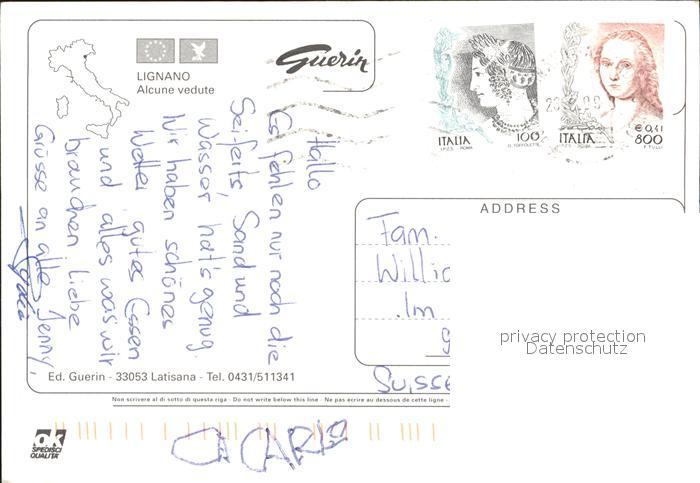 LIGNANO
Alcune vedute
Guerin
ITALIA
100
I.P.Z.S. - ROMA
D. TOFFOLETTI
€ 0,41
ITALIA 800
Hallo
Es fehlen nur noch die
Seifeits, Sand und
Wasser hat's genug.
Wir haben schönes
Wetter gutes Essen
und alles was wir
brauchen. Liebe
Grüsse an alle Jenny,
ADDRESS
Fam.
Im
Suisse
privacy protection
Datenschutz
Ed. Guerin - 33053 Latisana - Tel. 0431/511341
Non scrivere al di sotto di questa riga - Do not write below this line - Ne pas ecrire au dessous de cette ligne -
ok
SPEDISCI
QUALITÀ